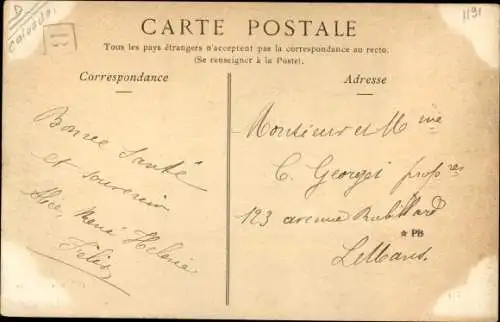 D
Calvados
B
1191
CARTE POSTALE
Tous les pays étrangers n'acceptent pas la correspondance au recto.
(Se renseigner à la Poste).
Correspondance
Adresse
Bonne Santé
et souvenir
Alice, Mme Hélène
Félix
Monsieur et Mme
C. Georget profres
123 avenue Rubillard
★ PB
Le Mans.